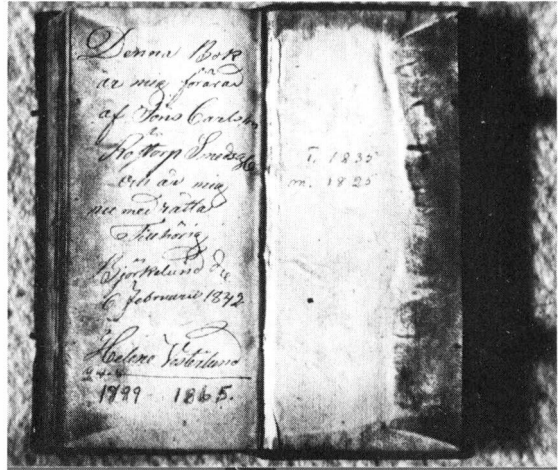 Denna Bok
är mig förärad
af Jöns Carlsson
i
och är mig
nu med rätta
Tillhörig
Björkelund den
6 februarii 1842
Helena Västerlund
1799 - 1865.
T. 1835
m. 1825